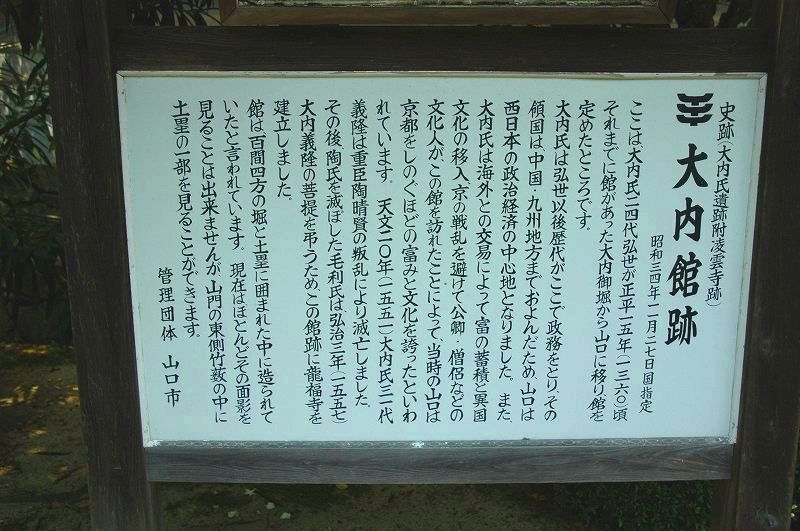 史跡(大内氏遺跡附凌雲寺跡)
大内館跡
昭和三四年一一月二七日国指定
ここは大内氏二四代弘世が正平一五年(一三六〇)頃
それまでに館があった大内御堀から山口に移り館を
定めたところです。
大内氏は弘世以後歴代がここで政務をとり、その
領国は中国・九州地方までおよんだため、山口は
西日本の政治経済の中心地となりました。また、
大内氏は海外との交易によって富の蓄積と異国
文化の移入、京の戦乱を避けて公卿・僧侶などの
文化人が、この館を訪れたことによって、当時の山口は
京都をしのぐほどの富みと文化を誇ったといわ
れています。天文二〇年(一五五一)大内氏三一代
義隆は重臣陶晴賢の叛乱により滅亡しました。
その後、陶氏を滅ぼした毛利氏は弘治三年(一五五七)
大内義隆の菩提を弔うため、この館跡に龍福寺を
建立しました。
館は百間四方の堀と土塁に囲まれた中に造られて
いたと言われています。現在はほとんどその面影を
見ることは出来ませんが、山門の東側竹薮の中に
土塁の一部を見ることができます。
管理団体 山口市